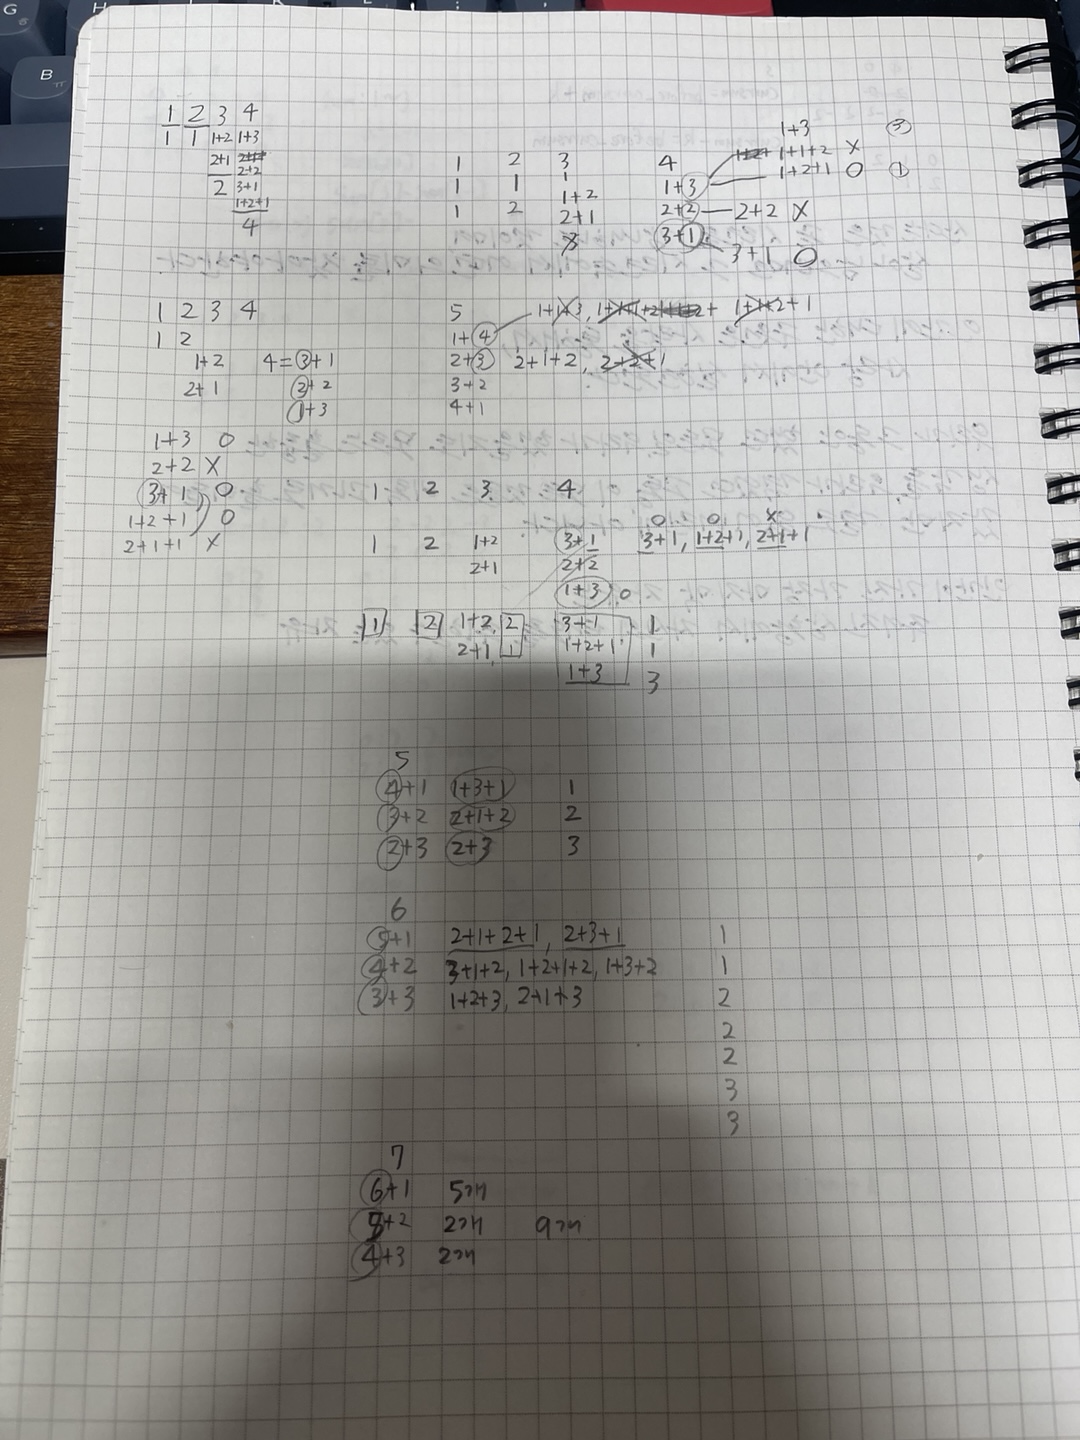 G
B
1 2 3 4
1 1 1+2 1+3
2+1
2+2
2 3+1
1+2+1
4
1 2 3 4
1 1 1 1+3
1+2
1 2 2+1 2+2 — 2+2 X
3 3+1
1+3 ③
1+1+2 X
1+2+1 O ①
3+1 O
1 2 3 4
1 2
1+2 4=③+1
2+1 ②+2
①+3
5
1+④ 1+1+3, 1+1+2+1
2+③ 2+1+2, 2+2+1
3+2
4+1
1+3 O
2+2 X
③+1 O
1+2+1 O
2+1+1 X
1 2 3 4
O O X
1 2 1+2 3+1 3+1, 1+2+1, 2+1+1
2+1 2+2
1+3 O
1 2 1+2, 2 3+1 1
2+1, 1 1+2+1 1
1+3 3
5
④+1 1+3+1 1
③+2 2+1+2 2
②+3 2+3 3
6
⑤+1 2+1+2+1, 2+3+1 1
④+2 3+1+2, 1+2+1+2, 1+3+2 1
③+3 1+2+3, 2+1+3 2
2
2
3
3
7
⑥+1 5개
⑤+2 2개 9개
④+3 2개